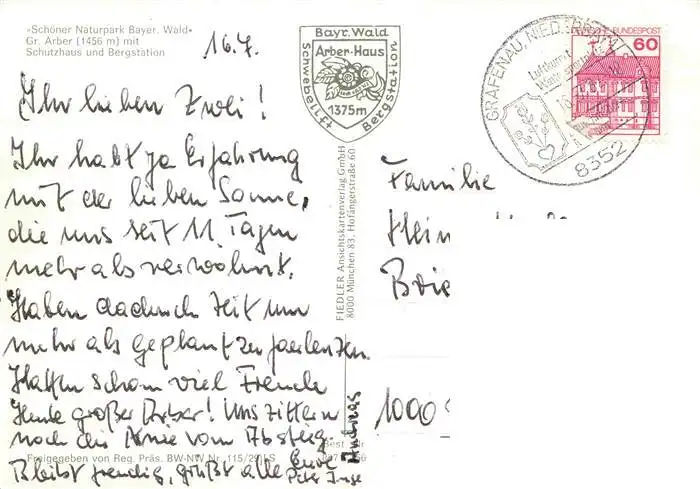 »Schöner Naturpark Bayer. Wald«
Gr. Arber (1456 m) mit
Schutzhaus und Bergstation
16.7.
Ihr lieben Zwei!
Ihr habt ja Erfahrung
mit der lieben Sonne,
die uns seit 11 Tagen
mehr als verwöhnt.
Haben dadurch Zeit um
mehr als geplant zu
Hatten schon viel Freude
Heute großer Arber! Uns zittern
noch die Knie vom Abstieg.
Bleibt freudig, grüßt alle Eure
Peter Inge
Andreas
Freigegeben von Reg. Präs. BW-NW Nr. 115/29 LS
Bayr. Wald
Arber-Haus
Schwebelift
Bergstation
1375m
FIEDLER Ansichtskartenverlag GmbH
8000 München 83, Hofangerstraße 60
GRAFENAU, NIEDERBAY
Luftkurort
8352
BUNDESPOST
60
Familie
Hein
1000